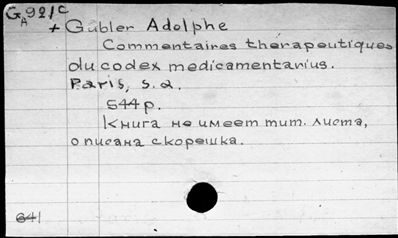 GA 921/C
+ Gubler Adolphe
Commentaires thérapeutiques
du codex medicamentarius.
Paris, s.a.
544 p.
Книга не имеет тит. листа,
описана с корешка.
641